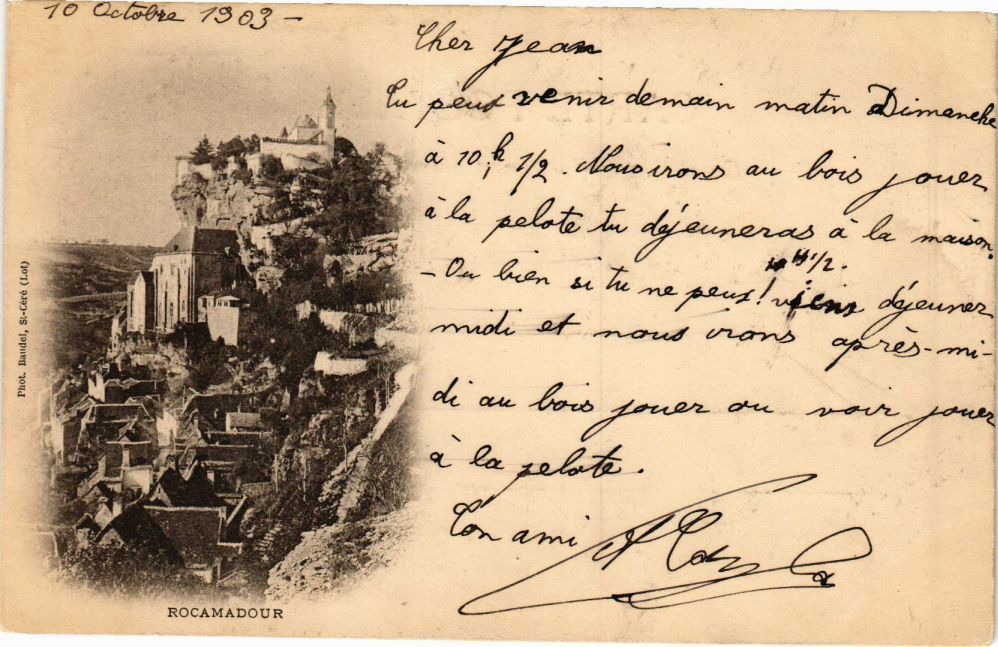 10 Octobre 1903 -
Cher Jean
Tu peux venir demain matin Dimanche
à 10h 1/2. Nous irons au bois jouer
à la pelote tu déjeuneras à la maison.
- Ou bien si tu ne peux! viens déjeuner
11 1/2.
midi et nous irons après-mi-
di au bois jouer ou voir jouer
à la pelote.
Ton ami
Phot. Baudel, St-Céré (Lot)
ROCAMADOUR